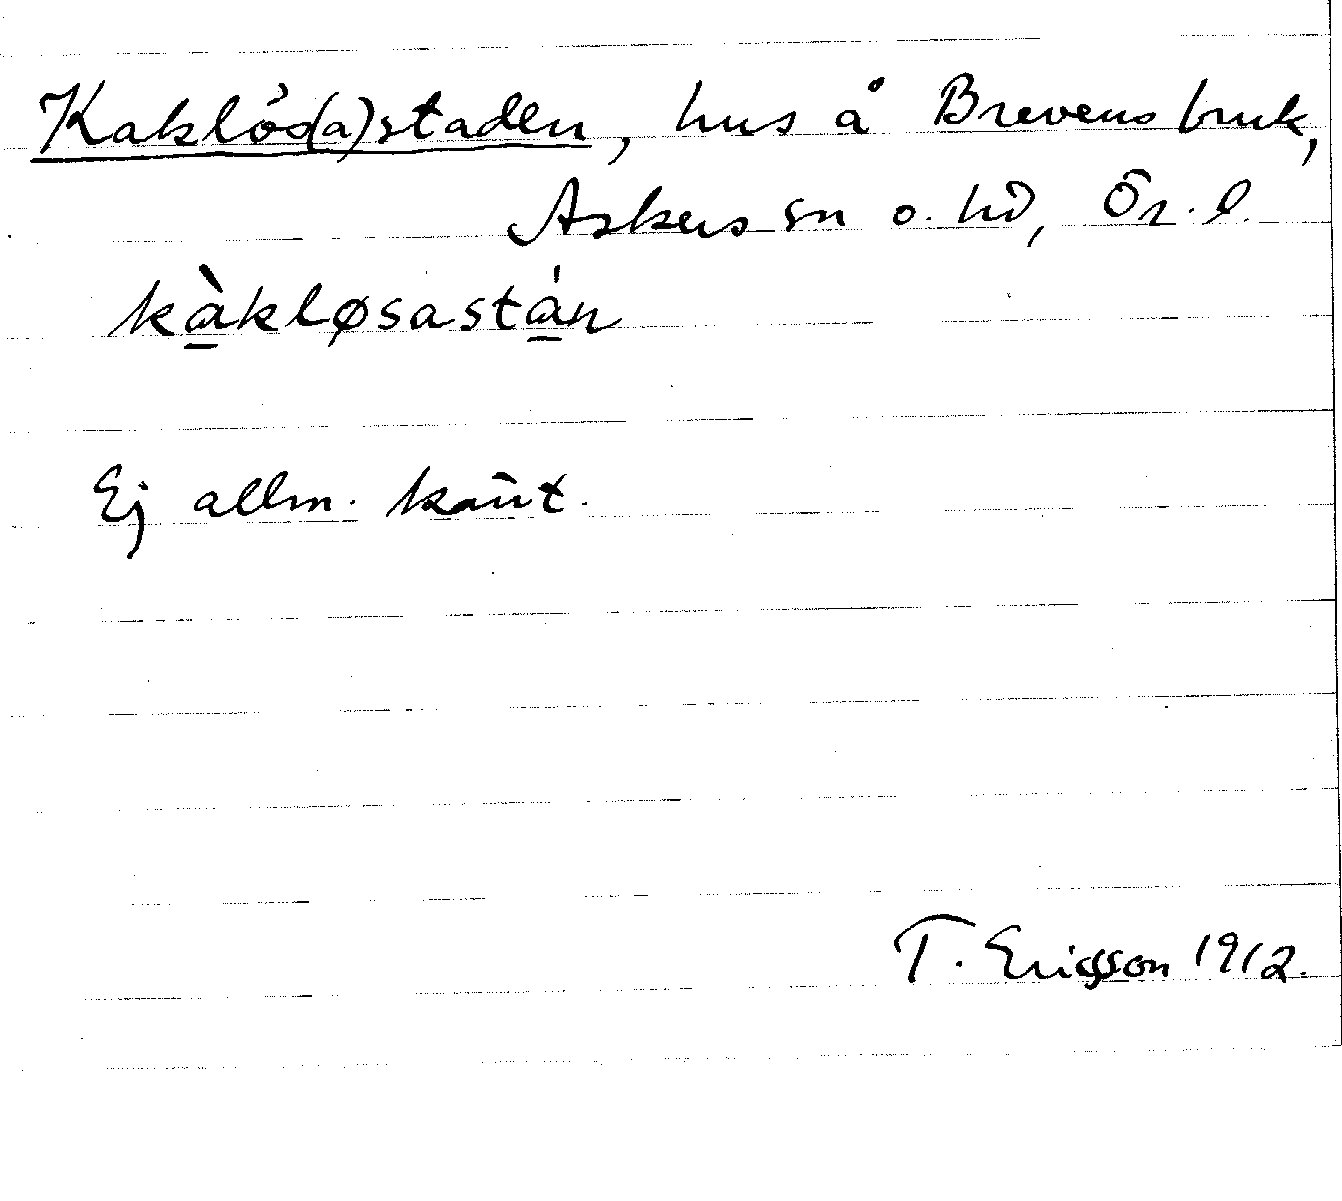 Kaklös(a)staden, hus å Brevens bruk,
Askers sn o. hd, Ör. l.
kàkløsastán
Ej allm. känt.
T. Ericsson 1912.